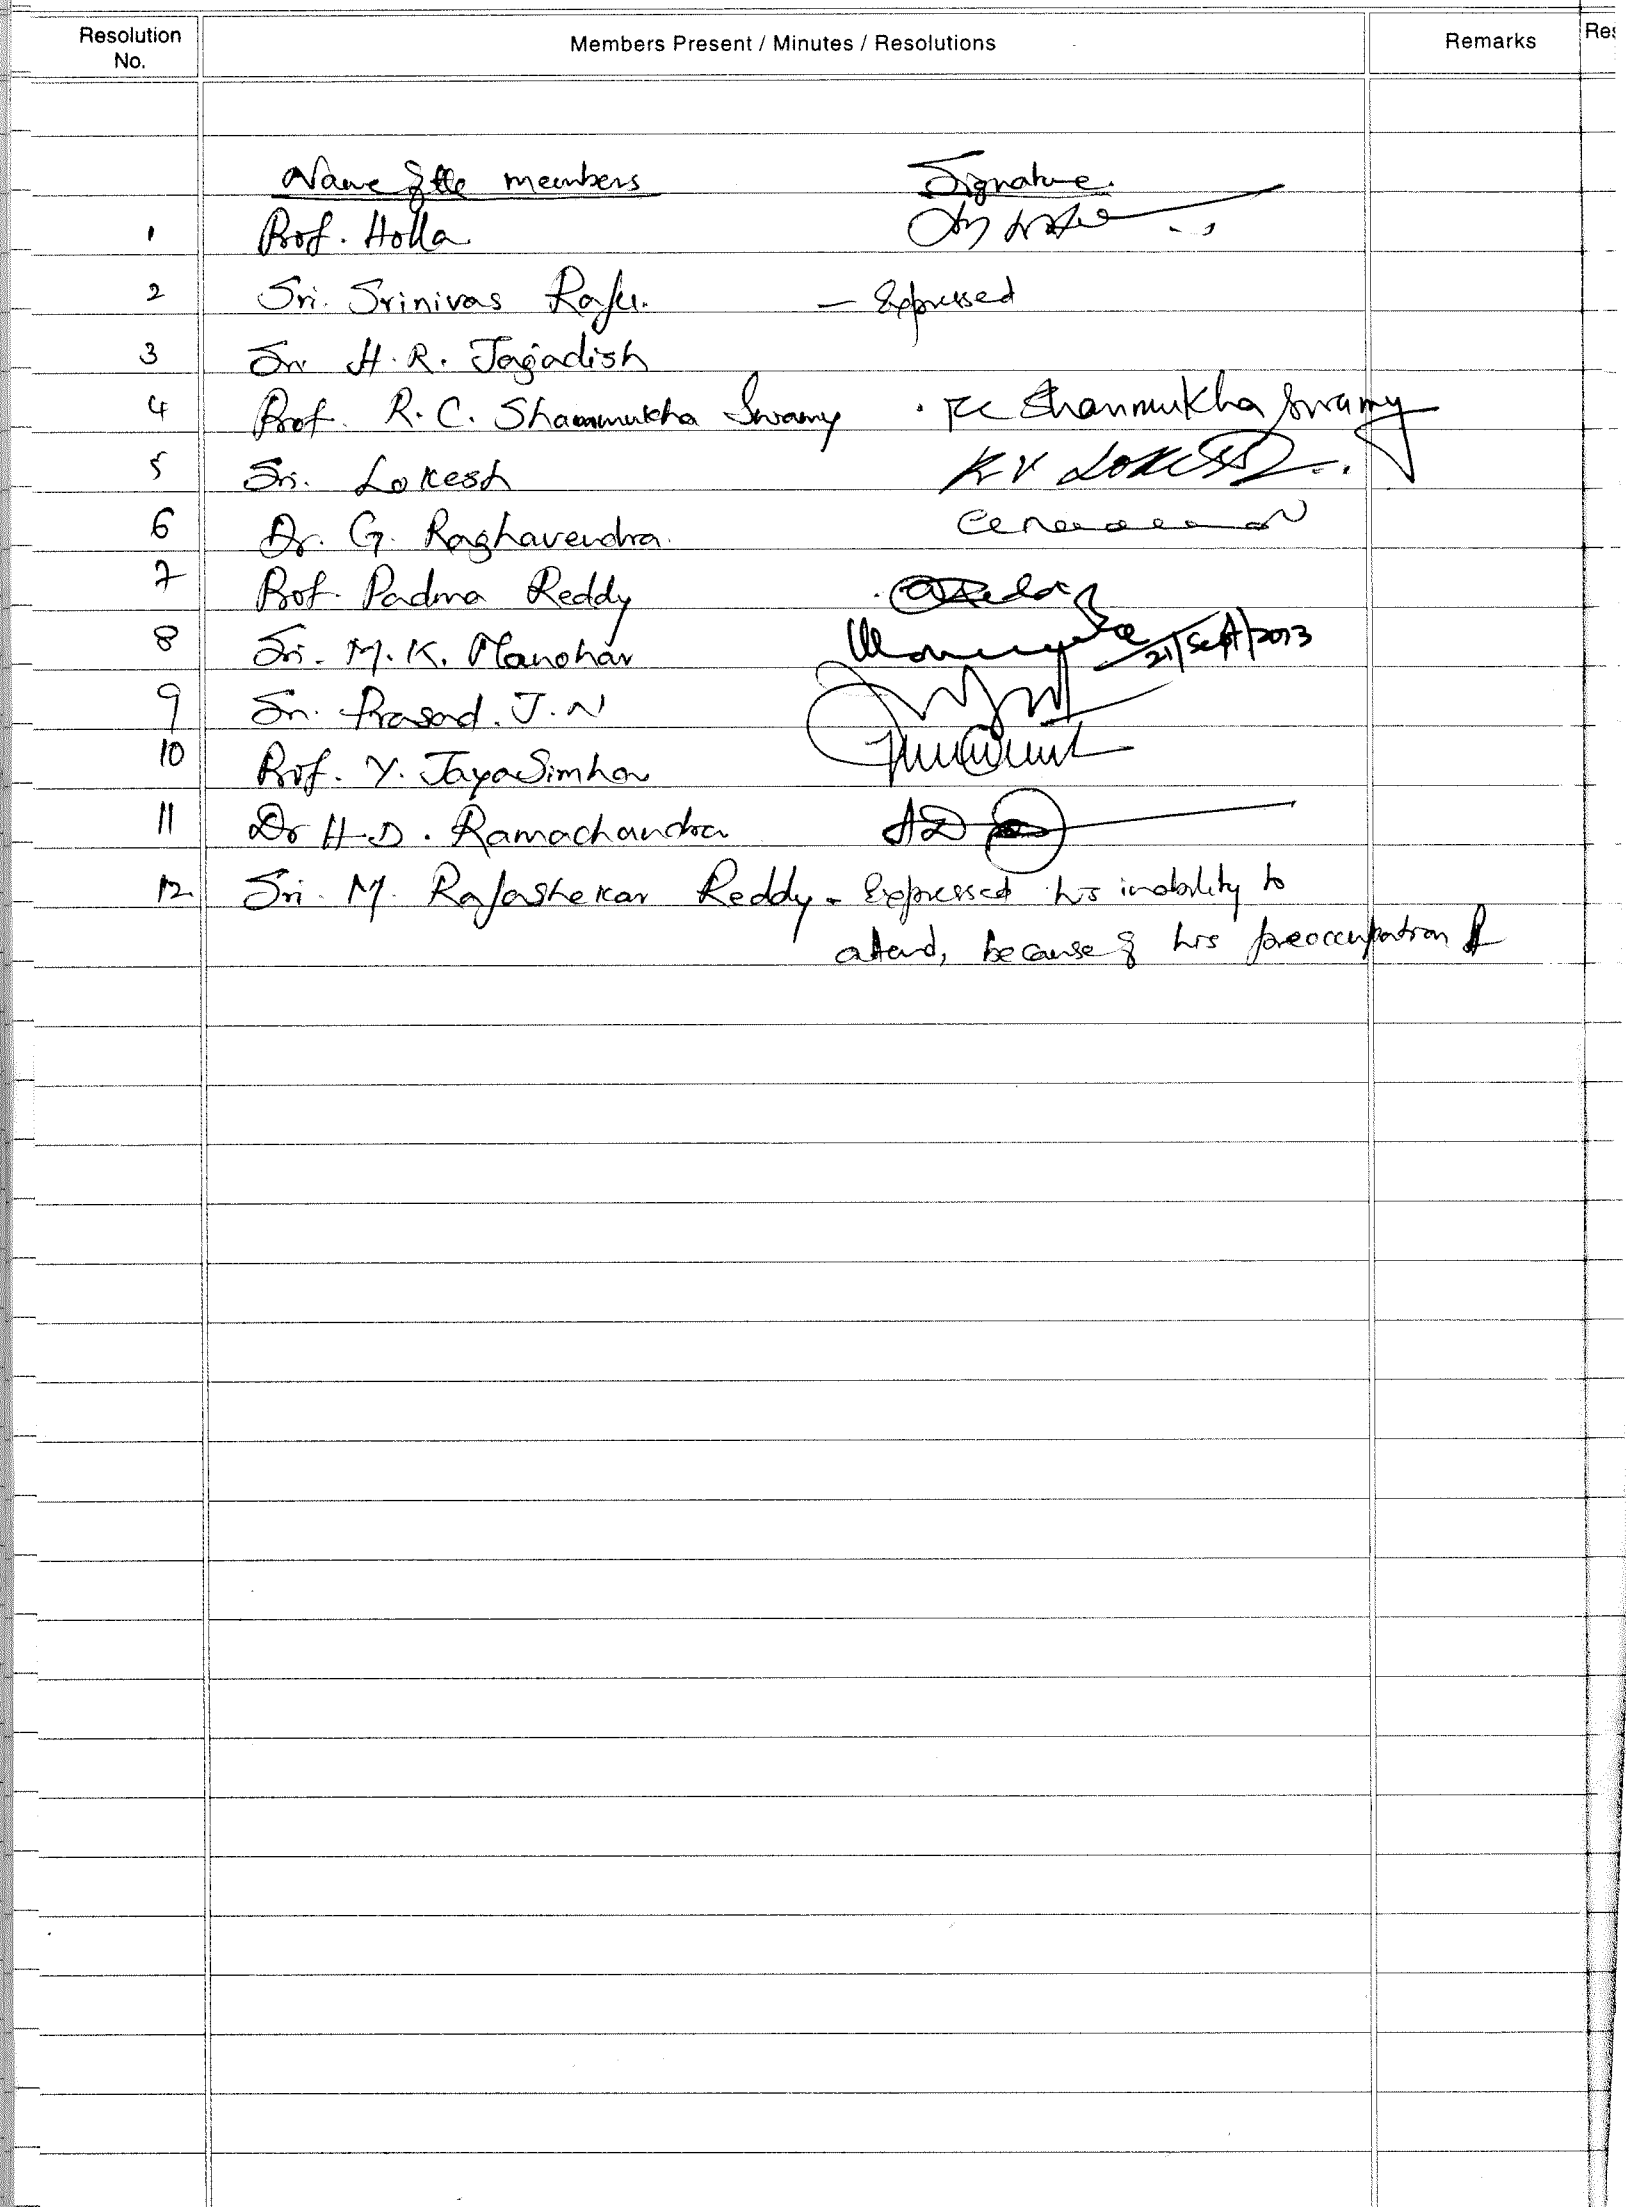 Resolution No. Members Present / Minutes / Resolutions Remarks Res
Name of the members Signature
1 Prof. Holla
2 Sri. Srinivas Raju. — Expressed
3 Sri H. R. Jagadish
4 Prof. R. C. Shanmukha Swamy RC Shanmukha Swamy
5 Sri. Lokesh K V LOKESH
6 Dr. G. Raghavendra
7 Prof. Padma Reddy
8 Sri. M. K. Manohar 21/Sept/2013
9 Sri. Prasad. J. N
10 Prof. Y. JayaSimha
11 Dr H. D. Ramachandra
12. Sri. M. Rajashekar Reddy - Expressed his inability to
attend, because of his preoccupation